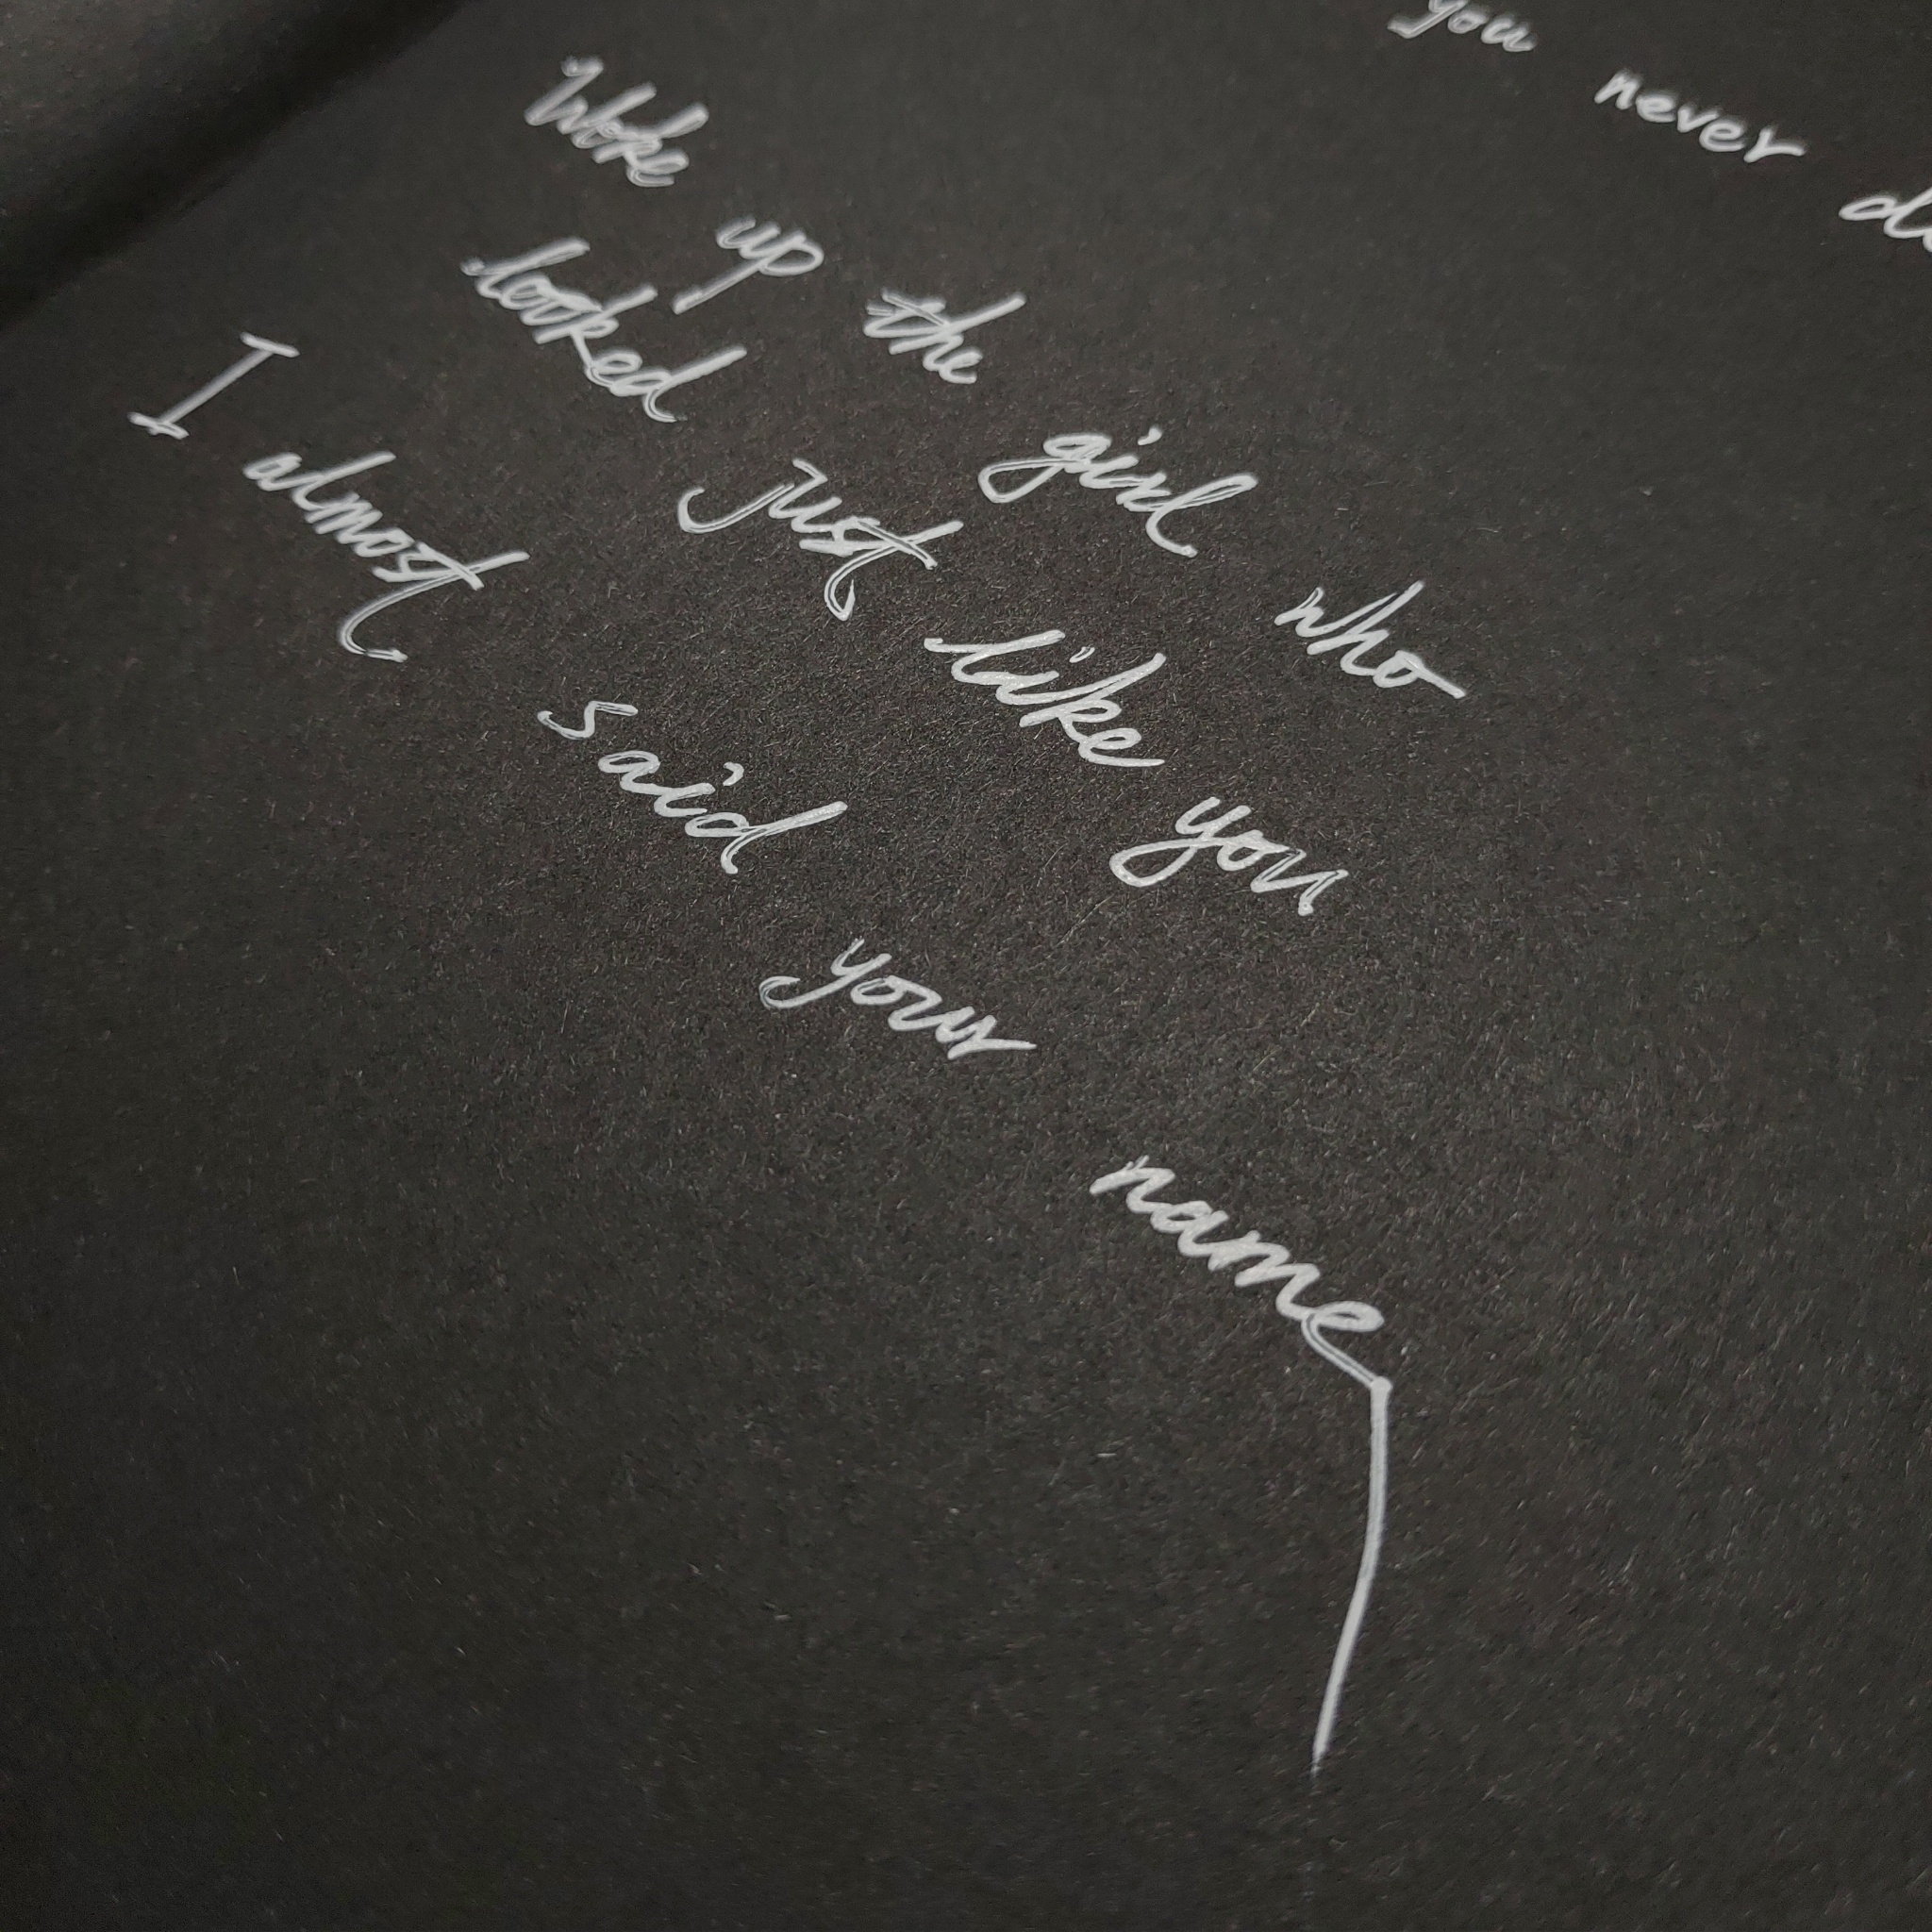 you never
Woke up the girl who
looked just like you
I almost said your name